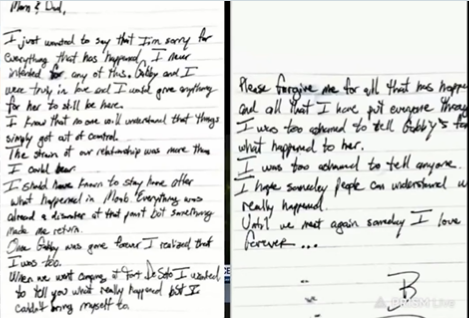 Mom & Dad,
I just wanted to say that I'm sorry for
everything that has happened. I never
intended for any of this. Gabby and I
were truly in love and I would give anything
for her to still be here.
I know that no one will understand that things
simply got out of control.
The strain of our relationship was more than
I could bear.
I should have known to stay home after
what happened in Moab. Everything was
already a disaster at that point but something
made me return.
Once Gabby was gone forever I realized that
I was too.
When we went camping at Fort De Soto I wanted
to tell you what really happened but I
couldn't bring myself to.
Please forgive me for all that has happe
and all that I have put everyone throug
I was too ashamed to tell Gabby's fa
what happened to her.
I was too ashamed to tell anyone.
I hope someday people can understand w
really happened.
Until we meet again someday I love
forever...
B